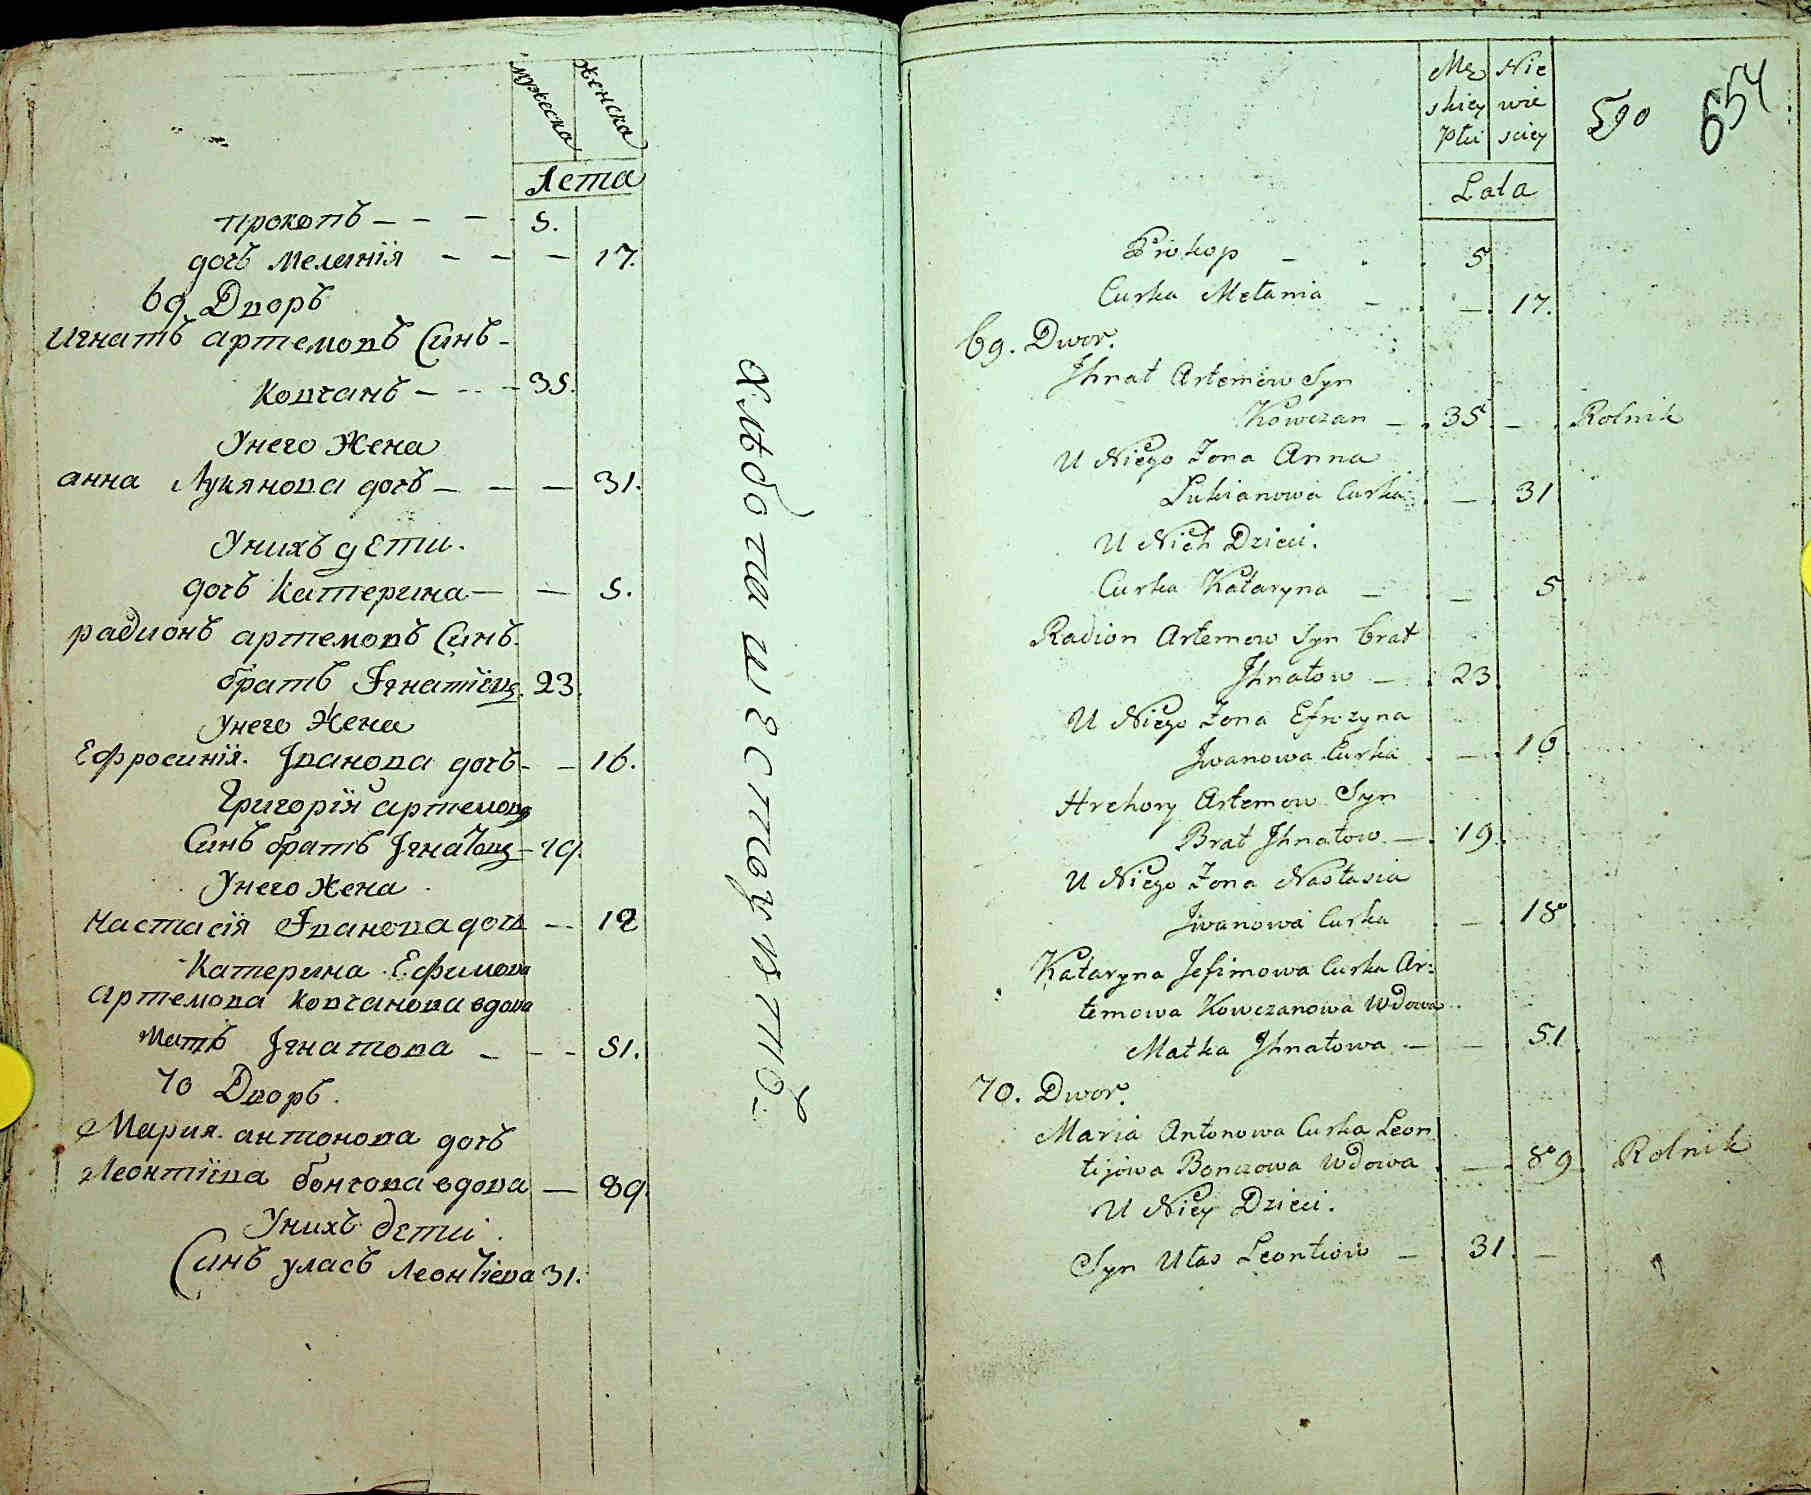 мужеска женска
Лета
прокопъ - - - 5.
дочь Меланія - - - 17.
69 Дворъ
Игнатъ артемовъ Синъ -
Ковчанъ - - - 35.
Унего Жена
анна Лукянова дочь - - - 31.
Унихъ дети.
дочь Катерина - - 5.
радионъ артемовъ Синъ
братъ Ігнатіевъ 23.
Унего Жена
Ефросинія Іванова дочь - - 16.
Григорій артемовъ
Синъ братъ Ігнатовъ - 19.
Унего Жена
Настасія Іванова дочь - - 18
Катерина Ефимова
артемова Ковчанова вдова
Мать Ігнатова - - - 51.
70 Дворъ.
Мария антонова дочь
Леонтиева бончова вдова - 89.
Унихъ дети.
Синъ уласъ Леонтіева 31.
хлебопашествуютъ.
Mę Nie
skiey wie
Płci sciey
590 654
Lata
Prokop - 5
Curka Mełania - - 17.
69. Dwor.
Jhnat Artemow Syn
Kowczan - 35 - Rolnik
U Niego Zona Anna
Lukianowa Curka - 31
U Nich Dzieci.
Curka Kataryna - - 5
Radion Artemow Syn brat
Jhnatow - 23
U Niego Zona Efrozyna
Jwanowa Curka - 16
Hrehory Artemow Syn
Brat Jhnatow - 19
U Niego Zona Nastasia
Jwanowa Curka - 18
Kataryna Jefimowa Curka Ar:
temowa Kowczanowa Wdowa
Matka Jhnatowa - - 51
70. Dwor.
Maria Antonowa Curka Leon
tijowa Bonczowa Wdowa - 89 Rolnik
U Niey Dzieci.
Syn Ułas Leontiow - 31 -